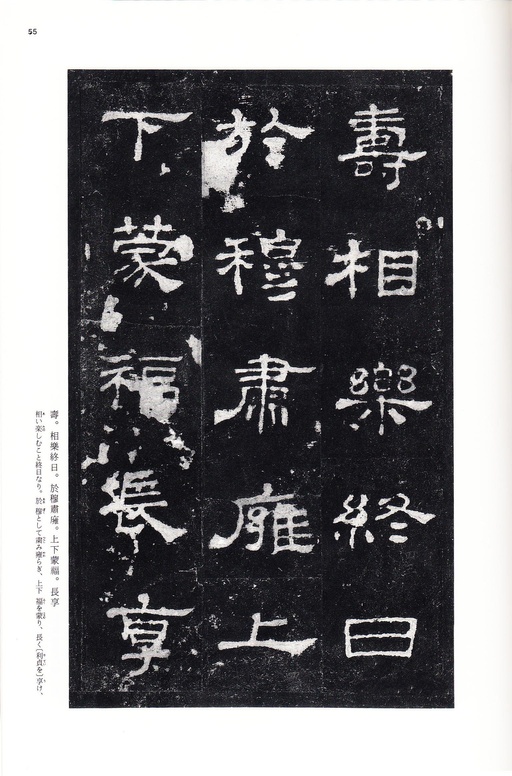 55
壽相樂終日
於穆肅雍上
下蒙福長享
壽。相樂終日。於穆肅雍。上下蒙福。長享
相い楽しむこと終日なり。於穆として肅み雍らぎ、上下 福を蒙り、長く（利貞を）享け、